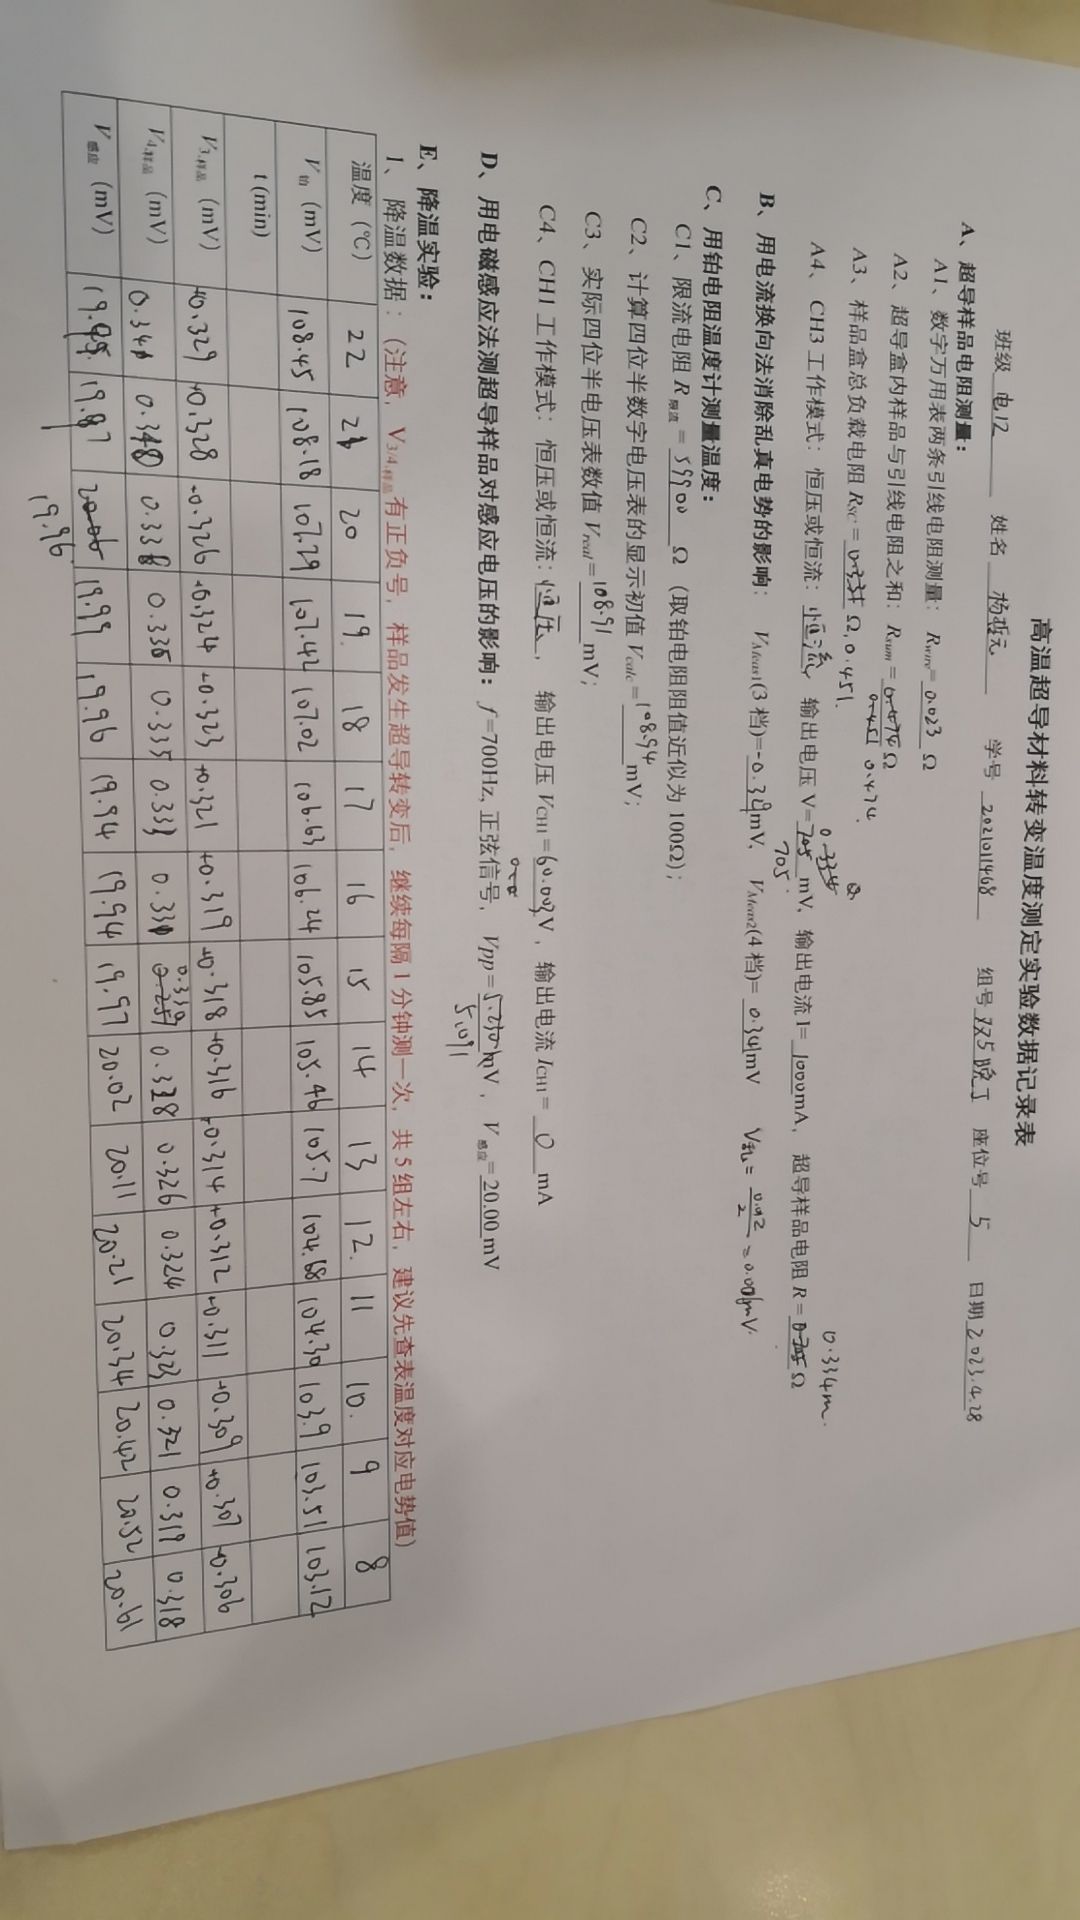 高温超导材料转变温度测定实验数据记录表
班级 电12 姓名 杨哲元 学号 2021011468 组号 双5晚J 座位号 5 日期 2023.4.28
A、超导样品电阻测量：
A1、数字万用表两条引线电阻测量：Rwire=0.023 Ω
A2、超导盒内样品与引线电阻之和：Rsum= 0.474 Ω
A3、样品盒总负载电阻 RSC= Ω, 0.451.
A4、CH3 工作模式：恒压或恒流：恒流，输出电压 V=705 mV，输出电流 I=1000mA，超导样品电阻 R= Ω 0.334m.
0.334
705.
B、用电流换向法消除乱真电势的影响： VMeas1(3 档)=-0.39mV， VMeas2(4 档)= 0.341mV V乱=
C、用铂电阻温度计测量温度：
C1、限流电阻 R限流= 59900 Ω （取铂电阻阻值近似为 100Ω）；
C2、计算四位半数字电压表的显示初值 Vcalc=108.94 mV；
C3、实际四位半电压表数值 Vreal=108.91 mV；
C4、CH1 工作模式：恒压或恒流：恒压， 输出电压 VCH1=60.003V ，输出电流 ICH1= 0 mA
D、用电磁感应法测超导样品对感应电压的影响：f=700Hz, 正弦信号， Vpp= mV， V感应=20.00 mV
5.091
E、降温实验：
1、降温数据：（注意，V3/4,样品有正负号，样品发生超导转变后，继续每隔 1 分钟测一次，共 5 组左右，建议先查表温度对应电势值）
温度（℃） 22 21 20 19. 18 17 16 15 14 13 12. 11 10. 9 8
V铂（mV） 108.45 108.18 107.29 107.42 107.02 106.63 106.24 105.85 105.46 105.7 104.68 104.30 103.9 103.51 103.12
t (min)
V3,样品（mV） +0.329 +0.328 +0.326 +0.324 +0.323 +0.321 +0.319 +0.318 +0.316 +0.314 +0.312 +0.311 +0.309 +0.307 +0.306
V4,样品（mV） 0.341 0.340 0.338 0.336 0.335 0.333 0.331 0.339 0.328 0.326 0.324 0.323 0.321 0.319 0.318
V感应（mV） 19.95 19.87 20.06 19.99 19.96 19.94 19.94 19.97 20.02 20.11 20.21 20.34 20.42 20.52 20.61
19.96